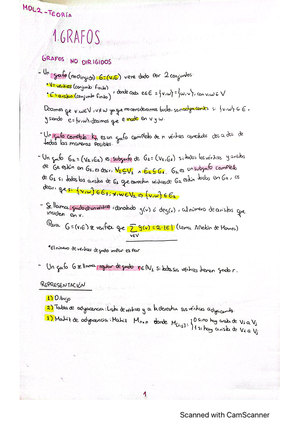 MDL2 - TEORÍA
1. GRAFOS
GRAFOS NO DIRIGIDOS
- Un grafo (no dirigido) G=(V,E) viene dado por 2 conjuntos
* V = vértices (conjunto finito)
* E = aristas (conjunto finito) donde cada e∈E = {v,w} = {w,v}, con v,w∈V
Decimos que v,w∈V, v≠w son adyacentes si {v,w}∈E,
y siendo e={v,w}, decimos que e incide en v y w.
- Un grafo completo Kn es un grafo completo de n vértices conectado dos a dos de
todas las maneras posibles.
- Un grafo G2=(V2,E2) es subgrafo de G1=(V1,E1) si todos los vértices y aristas
de G2 están en G1, es decir, V2⊆V1 y E2⊆E1. G2 es un subgrafo completo
de G1 si todas las aristas de G1 que conectan vértices de G2 están todas en G2, es
decir que si {v,w}∈E1, v,w∈V2 ⇒ {v,w}∈E2.
- Se llama grado de un vértice, denotado g(v) ó deg(v), al número de aristas que
inciden en v.
Para G=(V,E) se verifica que Σ g(v) = 2·|E| (Lema Apretón de Manos)
v∈V
* El número de vértices de grado impar es par
- Un grafo G se llama regular de grado r∈ℕ, si todos sus vértices tienen grado r.
REPRESENTACIÓN
1) Dibujo
2) Tablas de adyacencia: Lista de vértices y a la derecha sus vértices adyacentes.
3) Matriz de adyacencia: Matriz Mn×n donde M(i,j) = { 0 si no hay arista de Vi a Vj
1 si hay arista de Vi a Vj
1
Scanned with CamScanner